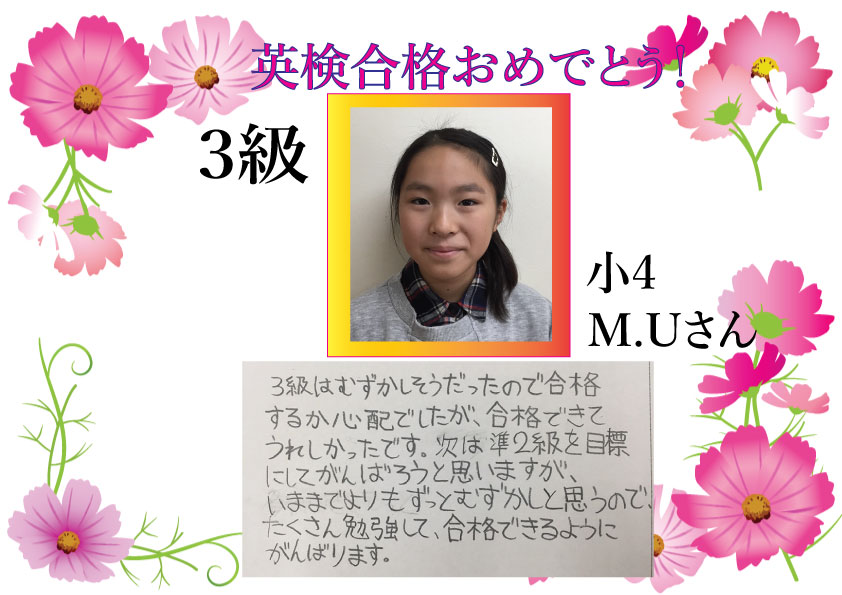 英検合格おめでとう!
3級
小4
M.Uさん
3級はむずかしそうだったので合格
するか心配でしたが、合格できて
うれしかったです。次は準2級を目標
にしてがんばろうと思いますが、
いままでよりもずっとむずかしと思うので、
たくさん勉強して、合格できるように
がんばります。